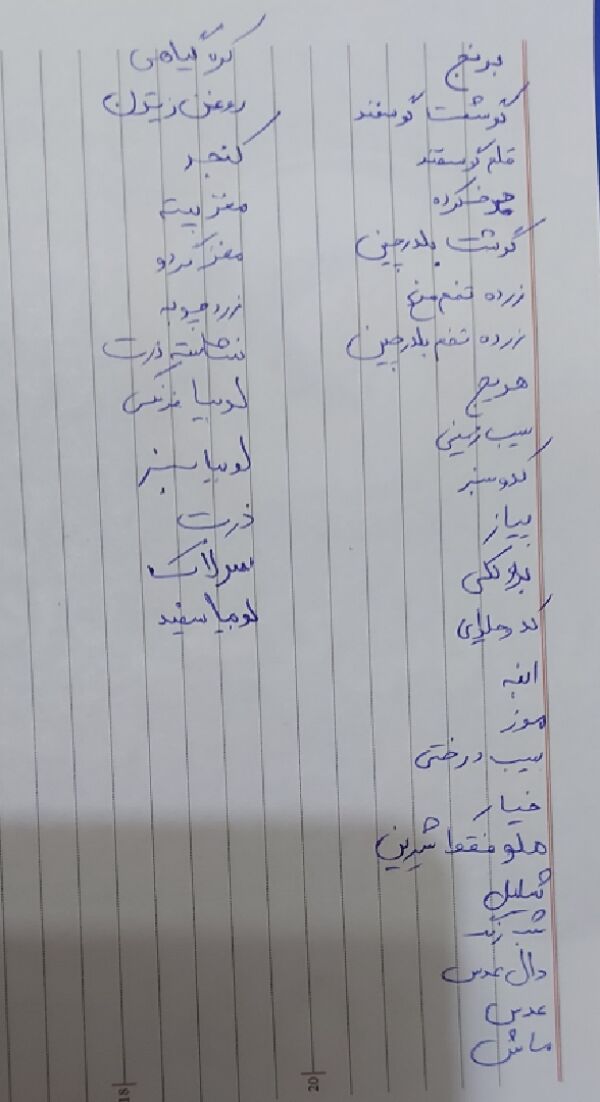 برنج
گوشت گوسفند
قلم گوسفند
جو پرکرده
گوشت بلدرچین
زرده تخم مرغ
زرده تخم بلدرچین
هویج
سیب زمینی
کدو سبز
پیاز
بروکلی
کدو حلوایی
انبه
موز
سیب درختی
خیار
هلو فقط شیرین
شلیل
دال عدس
عدس
ماش
کره گیاهی
روغن زیتون
کنجد
مغز پسته
مغز گردو
زردچوبه
نشاسته ذرت
لوبیا قرمز
لوبیا سبز
ذرت
سولاک
لوبیا سفید
18
20